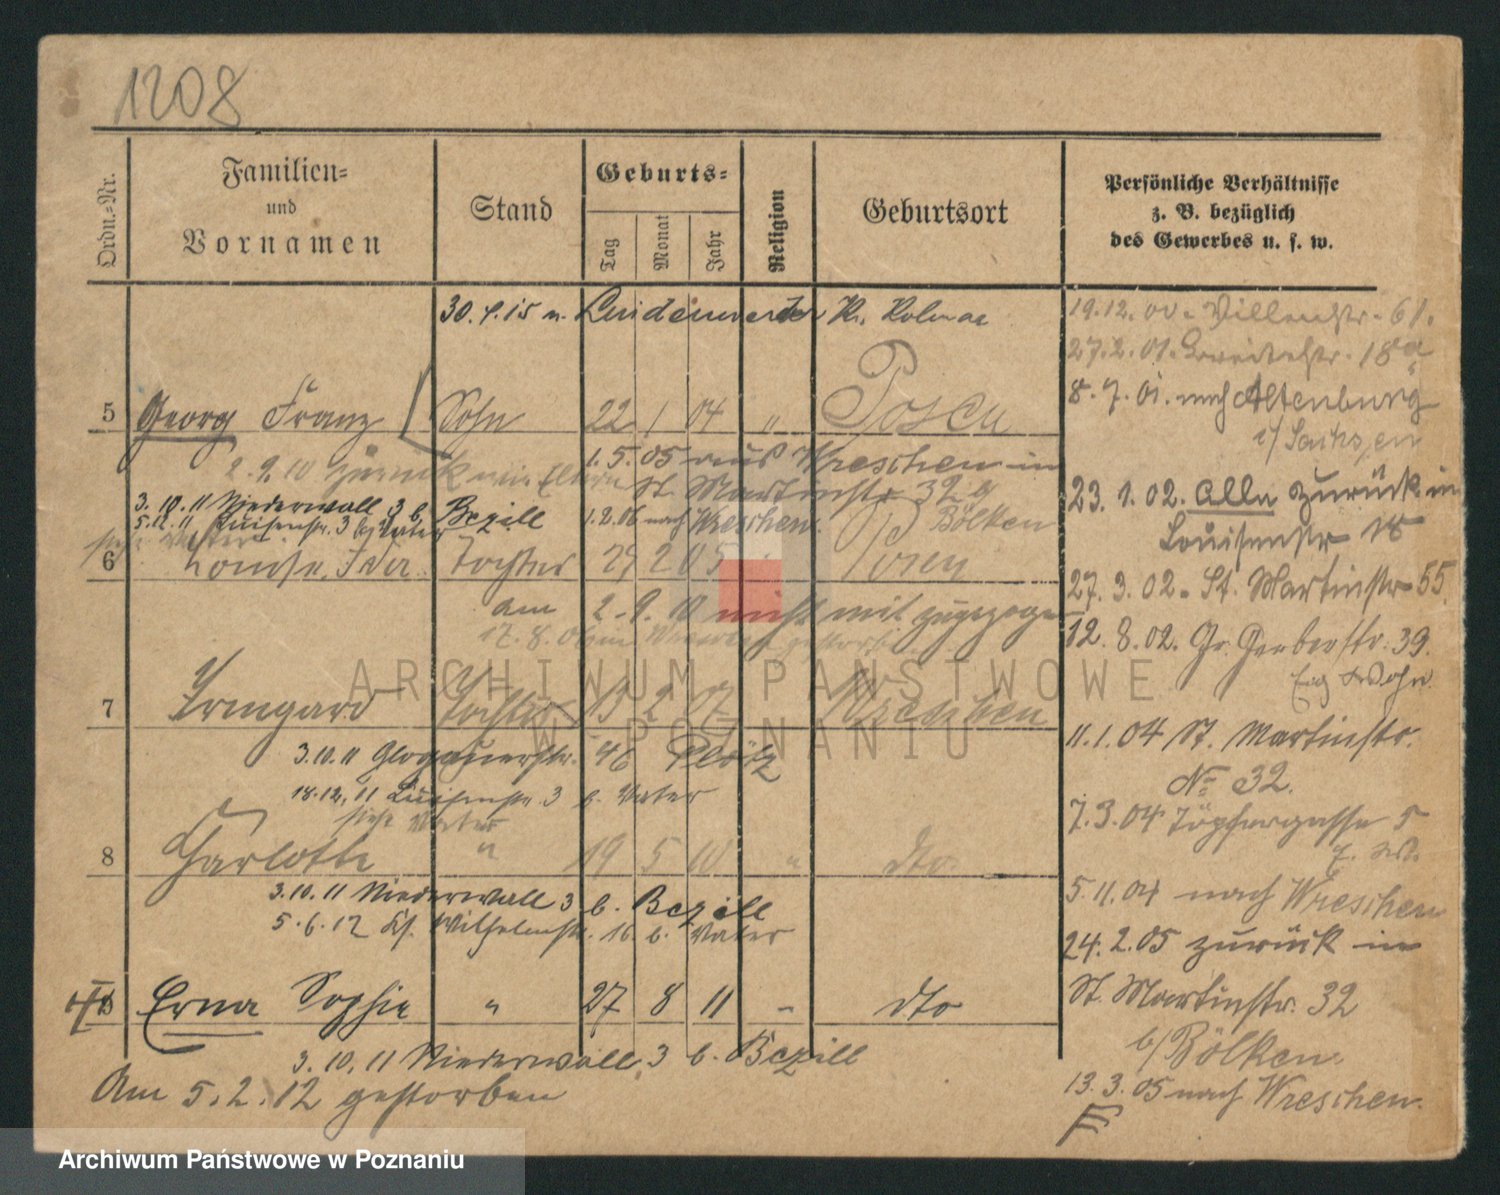 1208
Ordn.-Nr.
Familien-
und
Vornamen
Stand
Geburts-
Tag
Monat
Jahr
Religion
Geburtsort
Persönliche Verhältnisse
z. B. bezüglich
des Gewerbes u. s. w.
30.4.15 n. Lindenwerder Kr. Kolmar
5 Georg Franz Sohn 22 1 04 " Posen
2.9.10 zurück mit Eltern
1.5.05 aus Wreschen in
St. Martinstr. 32 b/
Bölken
3.10.11 Niederwall 3 b. Bezill
1.2.06 nach Wreschen.
5.12.11 Luisenstr. 3 b/ Vater
siehe Vater
6 Louise Ida Tochter 29 2 05 " Posen
am 2.9.10 nicht mit zugezogen
17.8.06 in Wreschen gestorben
7 Irmgard Tochter 13 2 07 Wreschen
3.10.11 Glogauerstr. 46 Plötz
18.12.11 Luisenstr. 3 b. Vater
siehe Vater
8 Charlotte " 19 5 10 " dto.
3.10.11 Niederwall 3 b. Bezill
5.6.12 Ks. Wilhelmstr. 16. b. Vater
Erna Sophie " 27 8 11 - dto
3.10.11 Niederwall 3 b. Bezill
Am 5.2.12 gestorben
19.12.00. 61.
27.2.01. 18a
8.7.01. nach Altenburg
i/ Sachsen
23.1.02. Alle zurück in
Louisenstr 18
27.3.02. St. Martinstr 55
12.8.02. Gr. Gerberstr. 39.
11.1.04 St. Martinstr.
No 32.
7.3.04 Töpfergasse 5
5.11.04 nach Wreschen
24.2.05 zurück in
St. Martinstr. 32
b/ Bölken.
13.3.05 nach Wreschen.
F
ARCHIWUM PAŃSTWOWE
W POZNANIU
Archiwum Państwowe w Poznaniu